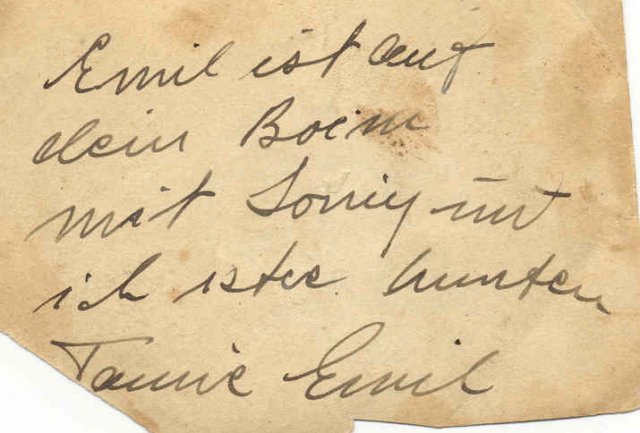 Emil ist auf
dein Boeim
mit Soniy unt
ich istee hunten
Tannie Emil